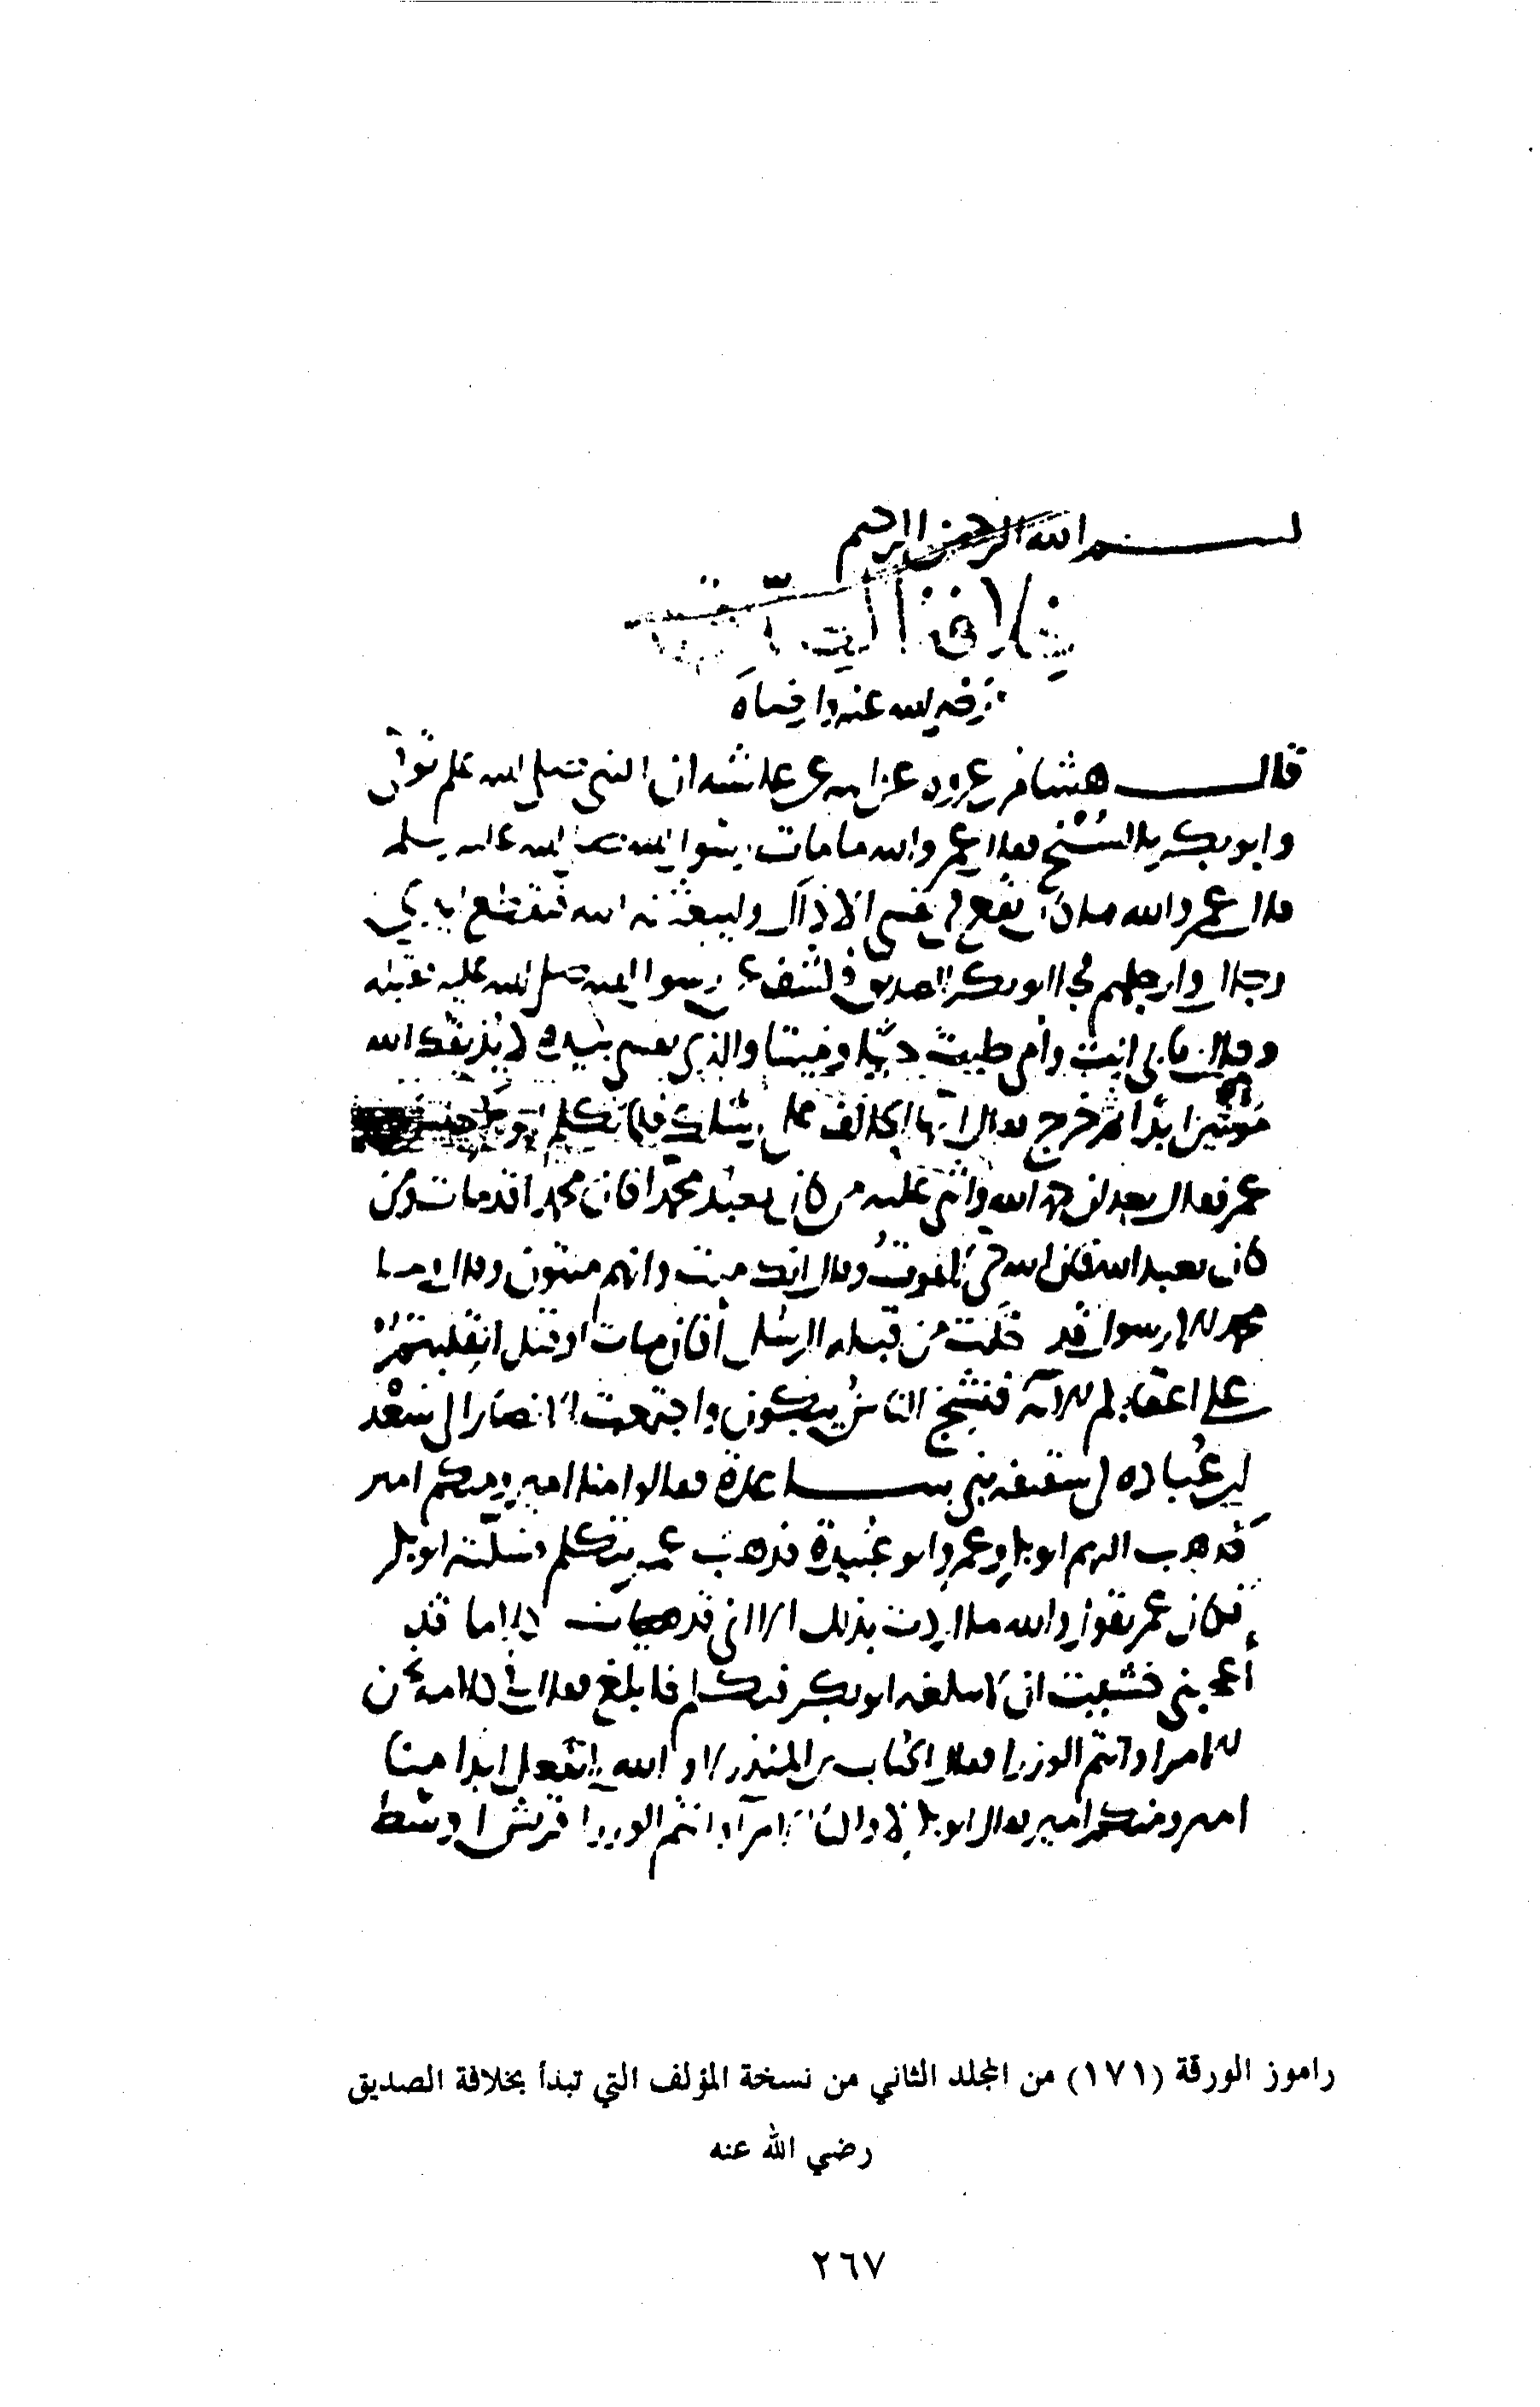 بسم الله الرحمن الرحيم
خلافة الصديق
رضي الله عنه وارضاه
قال هشام بن عروة عن ابيه عن عائشة ان النبي صلى الله عليه توفي
وابو بكر بالسنح فقال عمر والله ما مات رسول الله صلى الله عليه وسلم
قال عمر والله ما كان يقع في نفسي الا ذاك وليبعثنه الله فيقطع ايدي
رجال وارجلهم فجا ابو بكر الصديق فكشف عن رسول الله صلى الله عليه فقبله
وقال بابي انت وأمي طبت حيا وميتا والذي نفسي بيده لا يذيقك الله
موتتين ابدا ثم خرج فقال ايها الحالف على رسلك فلما تكلم ابو بكر جلس
عمر فقال بعد ان حمد الله واثنى عليه من كان يعبد محمدا فان محمدا قد مات ومن
كان يعبد الله فان الله حي لا يموت وقال انك ميت وانهم ميتون وقال وما
محمد الا رسول قد خلت من قبله الرسل أفان مات او قتل انقلبتم
على اعقابكم الاية فنشج الناس يبكون واجتمعت الانصار الى سعد
بن عبادة في سقيفة بني ساعدة فقالوا منا امير ومنكم امير
فذهب اليهم ابو بكر وعمر وابو عبيدة فذهب عمر يتكلم فسكته ابو بكر
فكان عمر يقول والله ما اردت بذلك الا اني قد هيات كلاما قد
أعجبني خشيت ان لا يبلغه ابو بكر فتكلم فابلغ فقال في كلامه نحن
الامرا وانتم الوزرا فقال الحباب بن المنذر لا والله لا نفعل ابدا منا
امير ومنكم امير فقال ابو بكر لا ولكنا الامرآ وانتم الوزرا قريش اوسط
راموز الورقة (١٧١) من المجلد الثاني من نسخة المؤلف التي تبدأ بخلافة الصديق
رضي الله عنه
٢٦٧